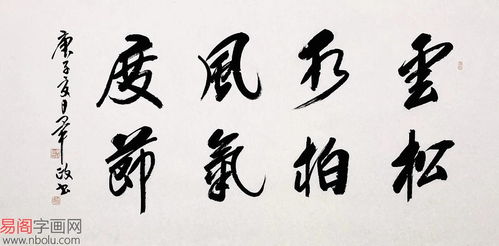 雲水風度
松柏氣節
庚子夏月
易阁字画网
www.nbolu.com